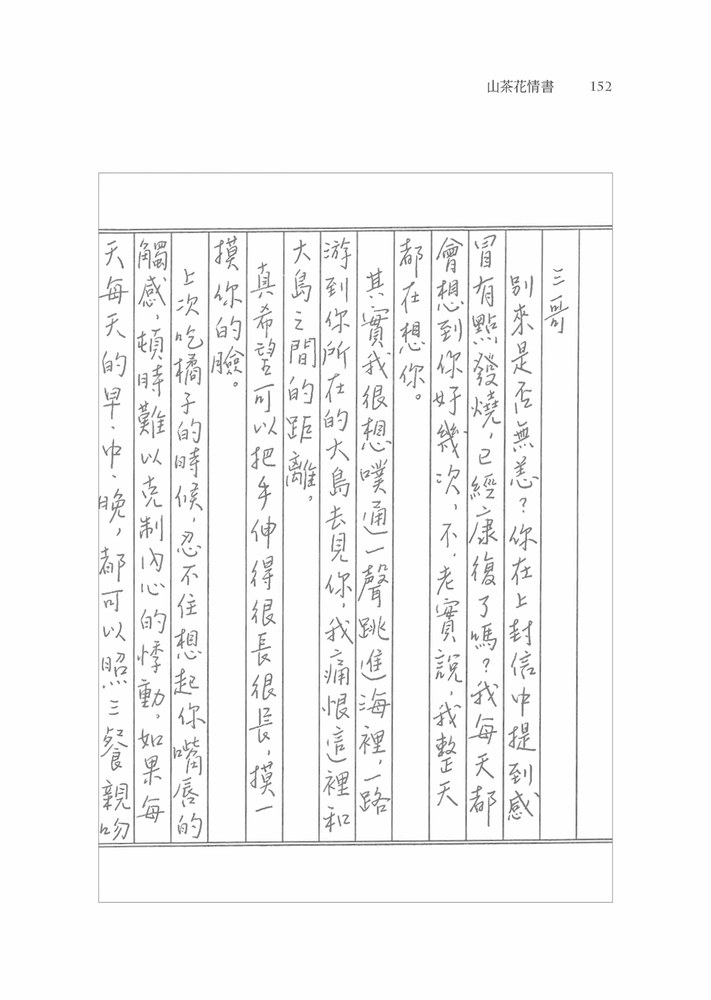 山茶花情書 152
三哥
別來是否無恙?你在上封信中提到感
冒有點發燒,已經康復了嗎?我每天都
會想到你好幾次,不,老實說,我整天
都在想你。
其實我很想噗通一聲跳進海裡,一路
游到你所在的大島去見你,我痛恨這裡和
大島之間的距離。
真希望可以把手伸得很長很長,摸一
摸你的臉。
上次吃橘子的時候,忍不住想起你嘴唇的
觸感,頓時難以克制內心的悸動,如果每
天每天的早、中、晚,都可以照三餐親吻